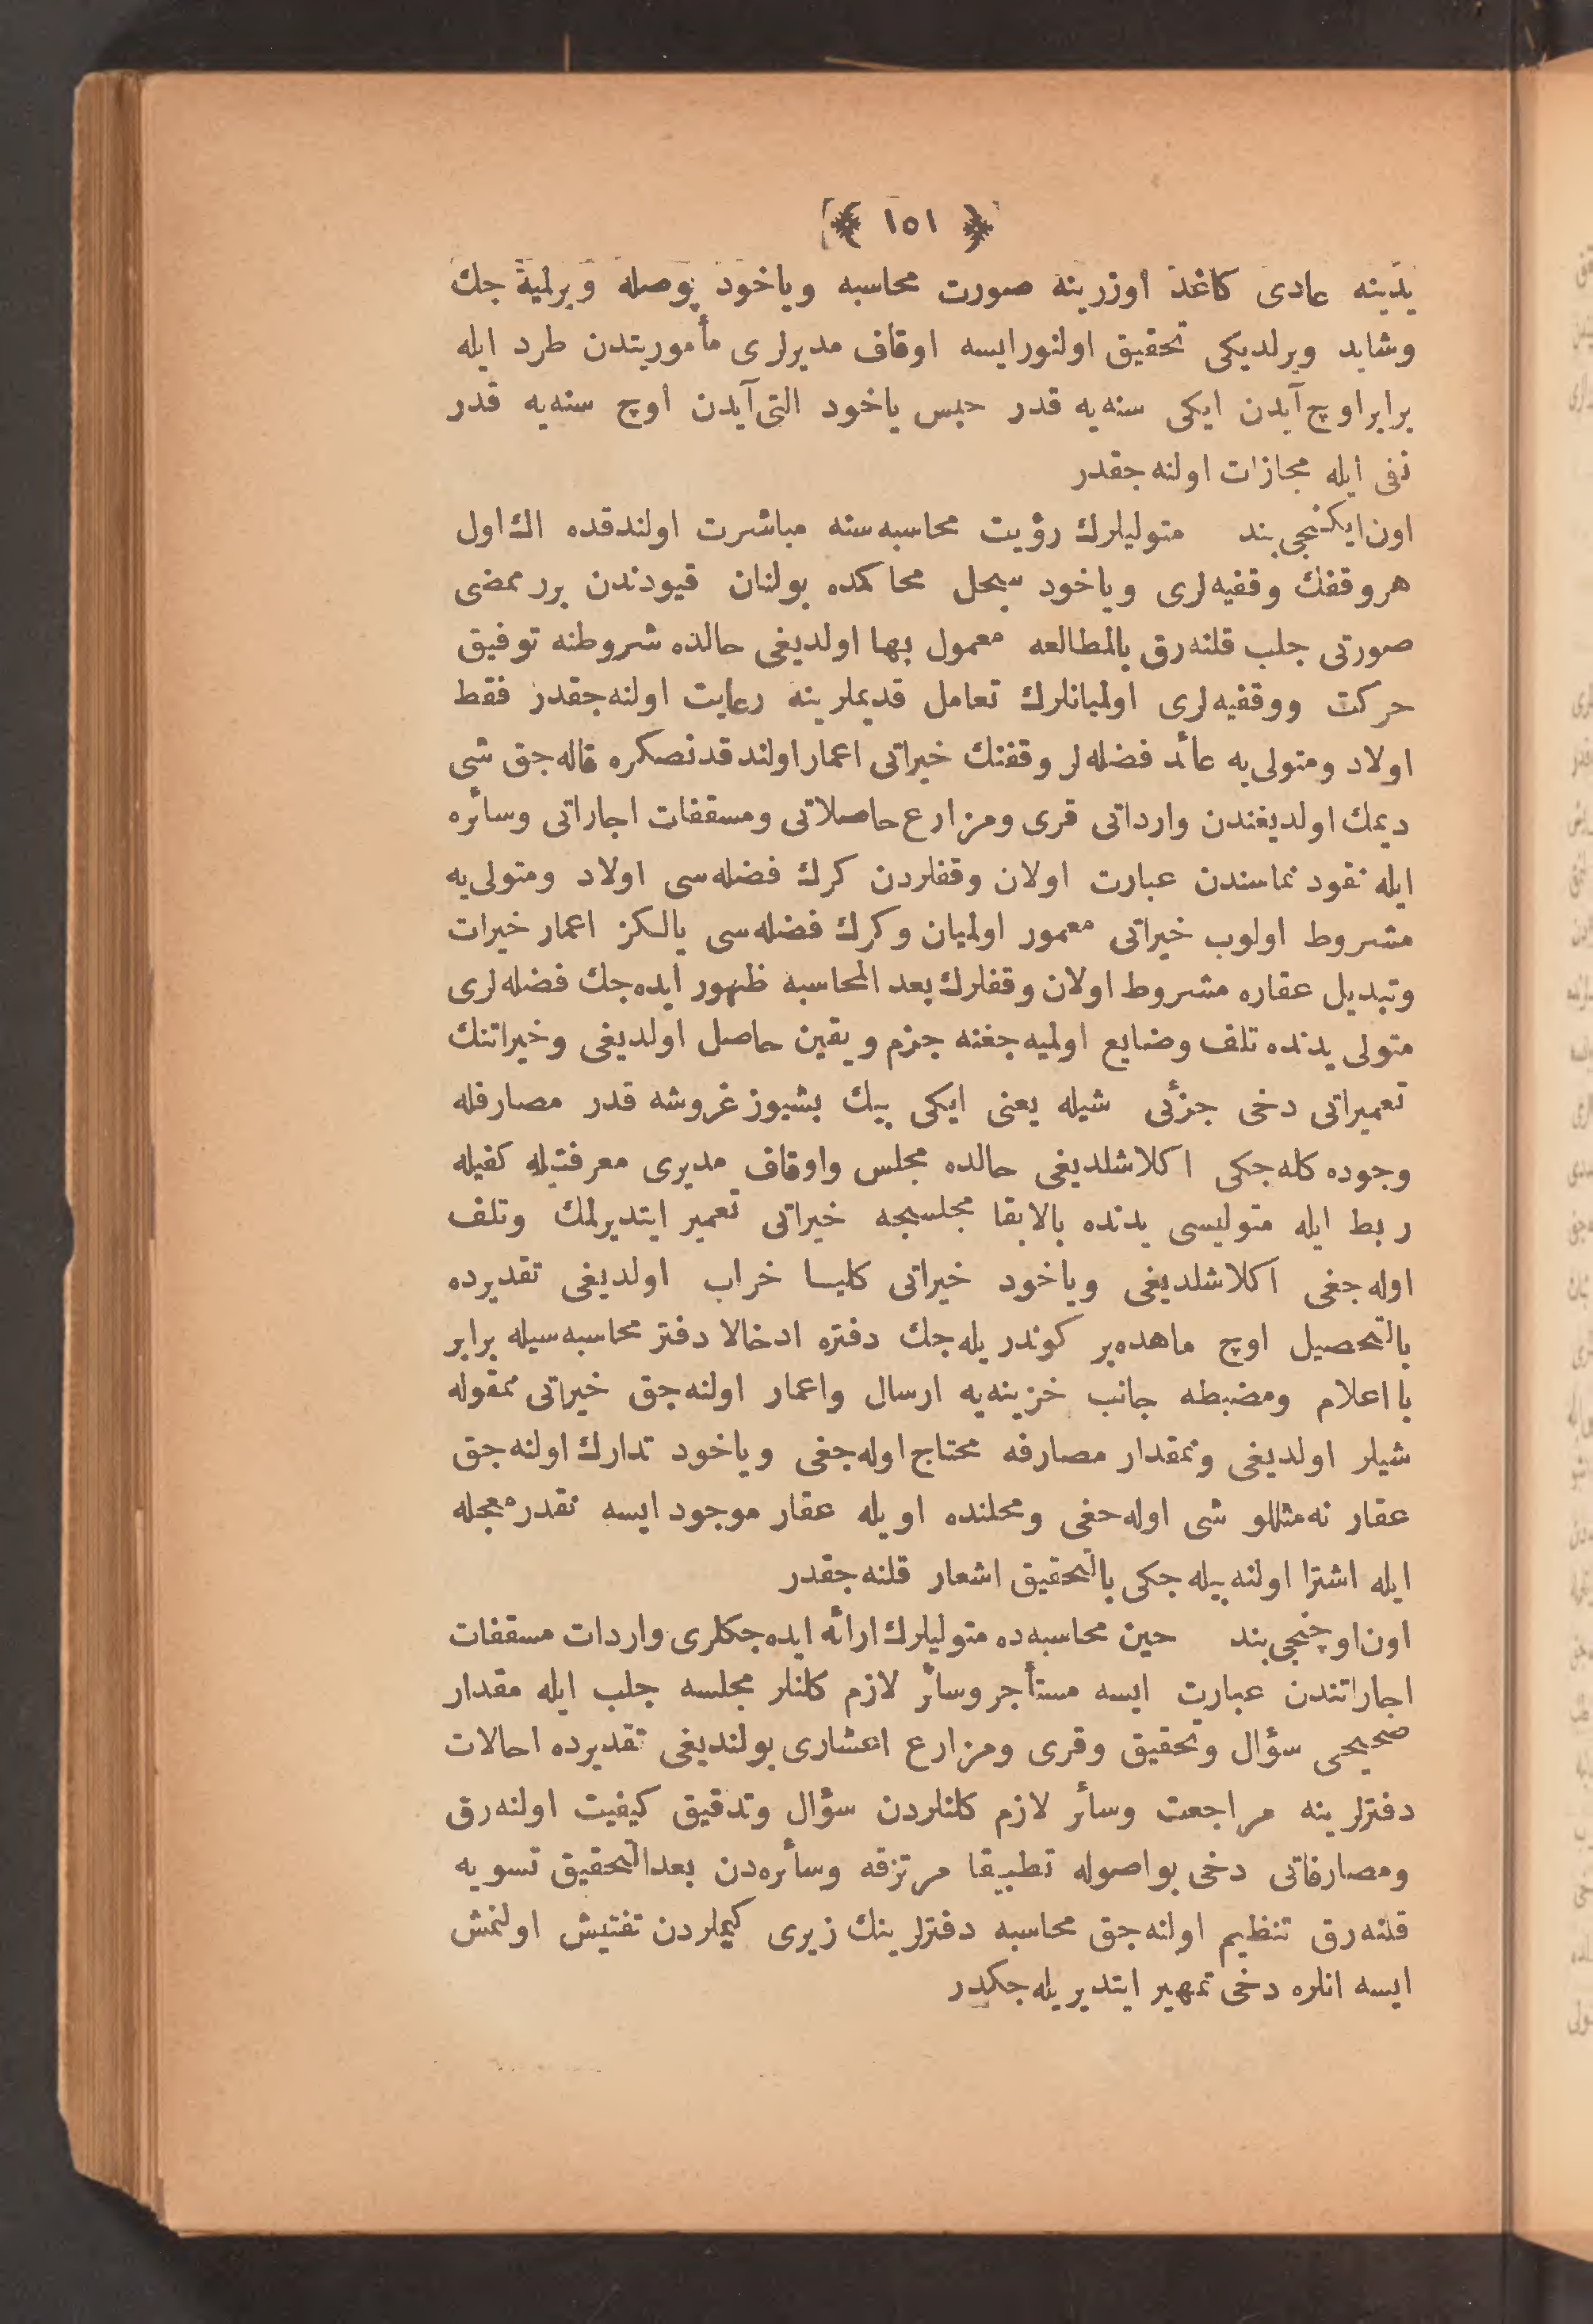 ﴿ ١٥١ ﴾
يدينه عادى كاغد اوزرينه صورت محاسبه وياخود پوصله ويرلميه جك
وشايد ويرلديكى تحقيق اولنورايسه اوقاف مديرلرى مأموريتدن طرد ايله
برابر اوچ آيدن ايكى سنه‌يه قدر حبس ياخود التى آيدن اوچ سنه‌يه قدر
نفى ايله مجازات اولنه جقدر
اون ايكنجى بند متوليلرك رؤيت محاسبه سنه مباشرت اولندقده اك اول
هر وقفك وقفيه لرى وياخود سجل محاكمده بولنان قيودندن برر ممضى
صورتى جلب قلنه رق بالمطالعه معمول بها اولديغى حالده شروطنه توفيق
حركت ووقفيه لرى اولميانلرك تعامل قديملرينه رعايت اولنه جقدر فقط
اولاد ومتولى يه عائد فضله لر وقفنك خيراتى اعمار اولندقدنصكره قاله جق شى
ديمك اولديغندن وارداتى قرى ومزارع حاصلاتى ومسقفات اجاراتى وسائره
ايله نقود نماسندن عبارت اولان وقفلردن كرك فضله سى اولاد ومتولى يه
مشروط اولوب خيراتى معمور اولميان وكرك فضله سى يالكز اعمار خيرات
وتبديل عقاره مشروط اولان وقفلرك بعد المحاسبه ظهور ايده جك فضله لرى
متولى يدنده تلف وضايع اولميه جغنه جزم ويقين حاصل اولديغى وخيراتنك
تعميراتى دخى جزئى شيله يعنى ايكى بيك بشيوز غروشه قدر مصارفله
وجوده كله جكى اكلاشلديغى حالده مجلس واوقاف مديرى معرفتيله كفيله
ربط ايله متوليسى يدنده بالابقا مجلسجه خيراتى تعمير ايتديرلمك وتلف
اوله جغى اكلاشلديغى وياخود خيراتى كليا خراب اولديغى تقديرده
بالتحصيل اوچ ماهده بر كوندريله جك دفتره ادخالا دفتر محاسبه سيله برابر
با اعلام ومضبطه جانب خزينه يه ارسال واعمار اولنه جق خيراتى نمقوله
شيلر اولديغى ونمقدار مصارفه محتاج اوله جغى وياخود تدارك اولنه جق
عقار نه مثللو شى اوله جغى ومحلنده اويله عقار موجود ايسه نقدر معجله
ايله اشترا اولنه بيله جكى بالتحقيق اشعار قلنه جقدر
اون اوچنجى بند حين محاسبه ده متوليلرك ارائه ايده جكلرى واردات مسقفات
اجاراتندن عبارت ايسه مستأجر وسائر لازم كلنلر مجلسه جلب ايله مقدار
صحيحى سؤال وتحقيق وقرى ومزارع اعشارى بولنديغى تقديرده احالات
دفترلرينه مراجعت وسائر لازم كلنلردن سؤال وتدقيق كيفيت اولنه رق
ومصارفاتى دخى بو اصوله تطبيقا مرتزقه وسائره دن بعد التحقيق تسويه
قلنه رق تنظيم اولنه جق محاسبه دفترلرينك زيرى كيملردن تفتيش اولنمش
ايسه انلره دخى تمهير ايتديريله جكدر